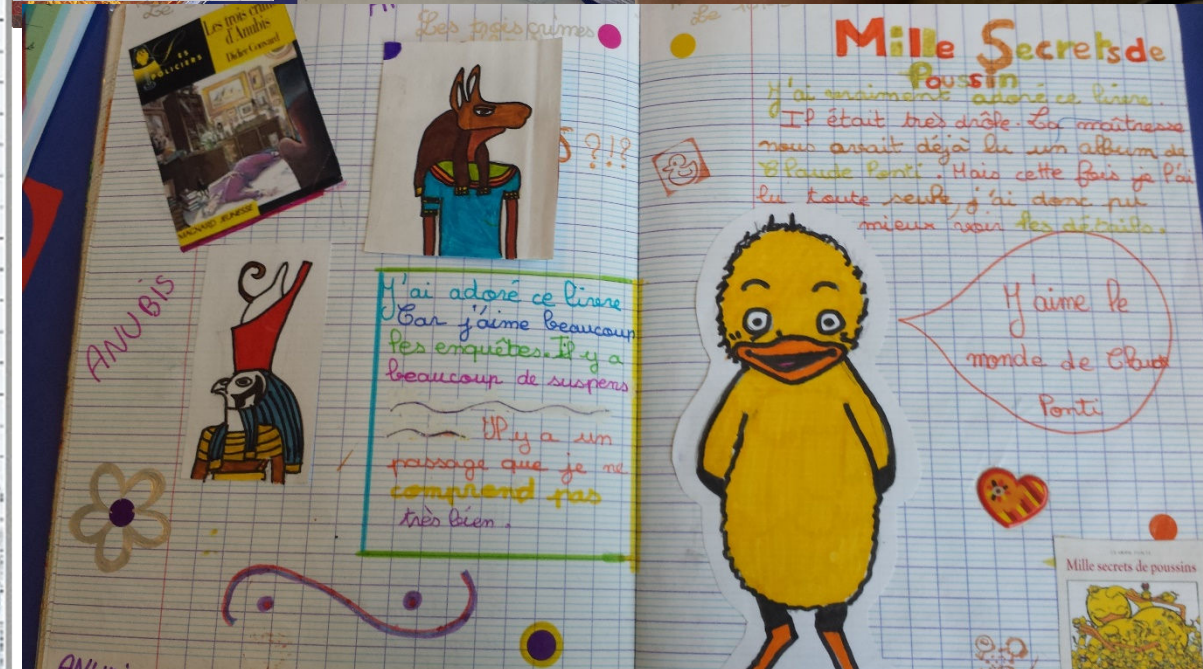 Le
Les trois crimes
d'Anubis
Didier Convard
LES
POLICIERS
MAGNARD JEUNESSE
Les trois crimes
5 ?!?
ANUBIS
J'ai adoré ce livre
Car j'aime beaucoup
les enquêtes. Il y a
beaucoup de suspens
Il y a un
passage que je ne
comprend pas
très bien.
Le
Mille Secrets de
Poussin
J'ai vraiment adoré ce livre.
Il était très drôle. La maîtresse
nous avait déjà lu un album de
Claude Ponti. Mais cette fois je l'ai
lu toute seule, j'ai donc pu
mieux voir les détails.
J'aime le
monde de Claude
Ponti
Mille secrets de poussins